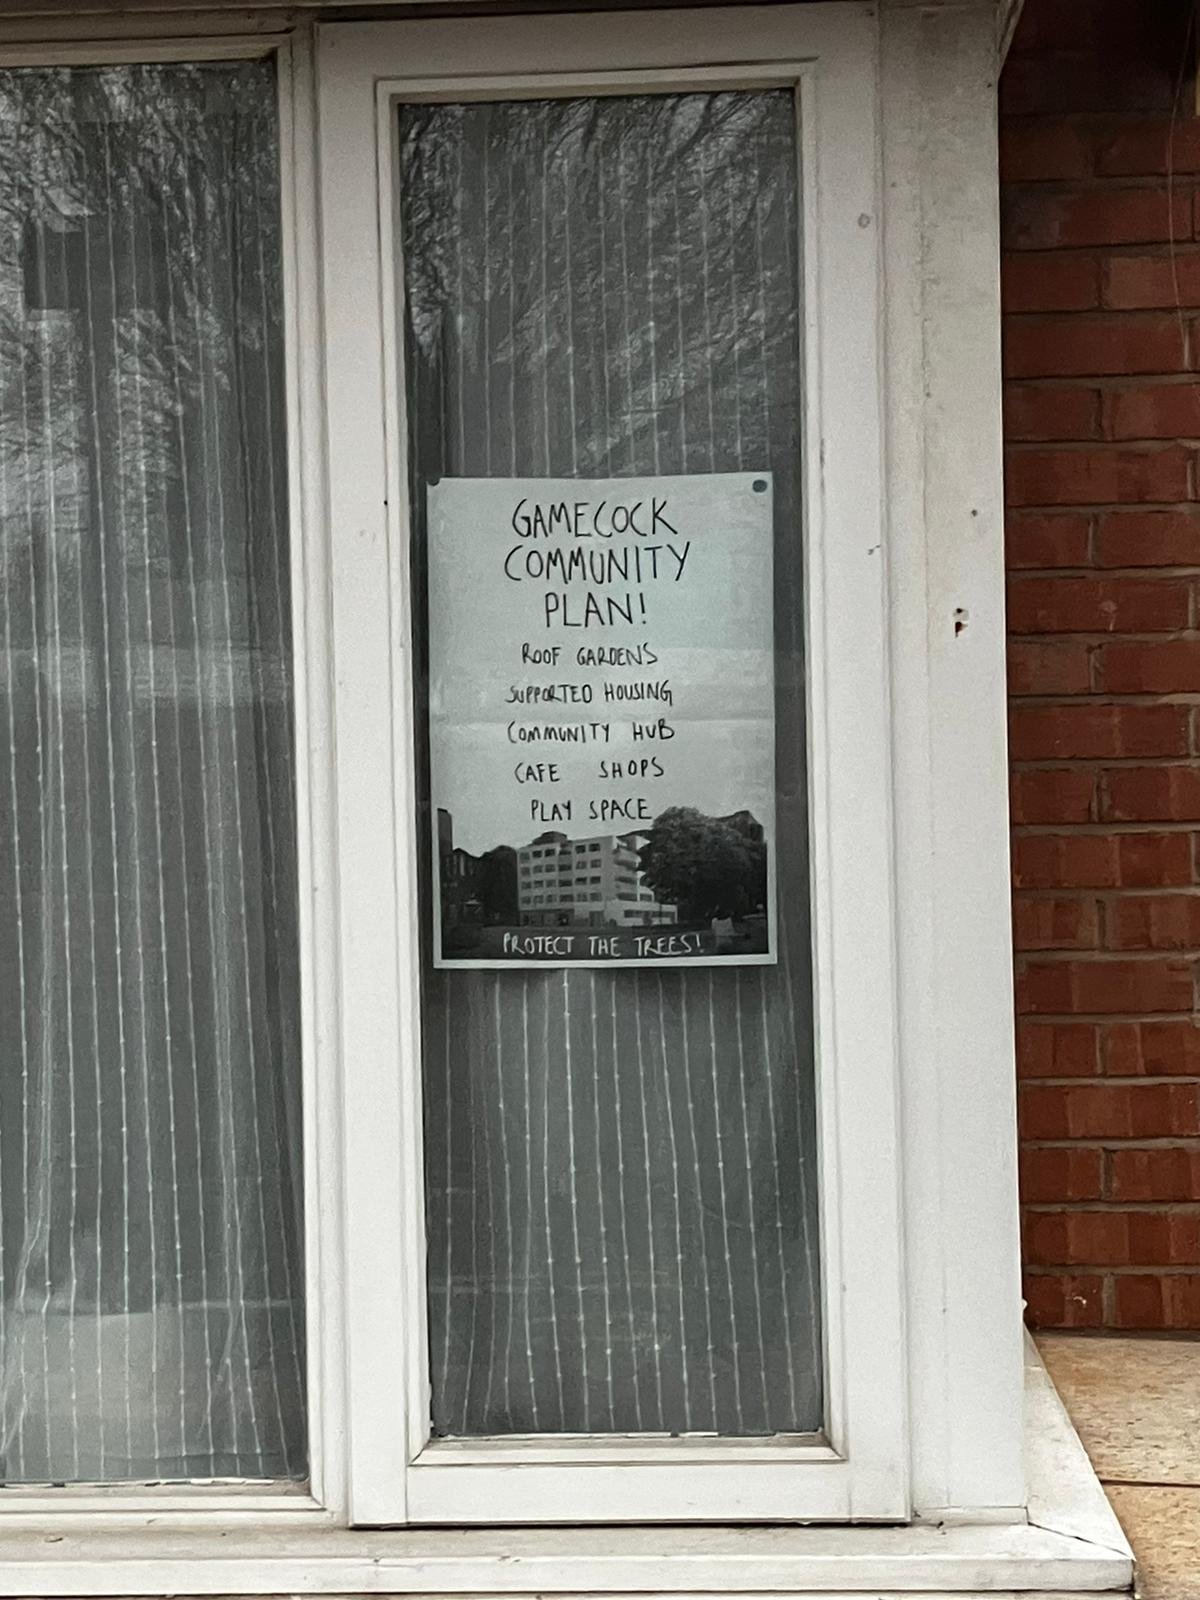 GAMECOCK
COMMUNITY
PLAN!
ROOF GARDENS
SUPPORTED HOUSING
COMMUNITY HUB
CAFE SHOPS
PLAY SPACE
PROTECT THE TREES!